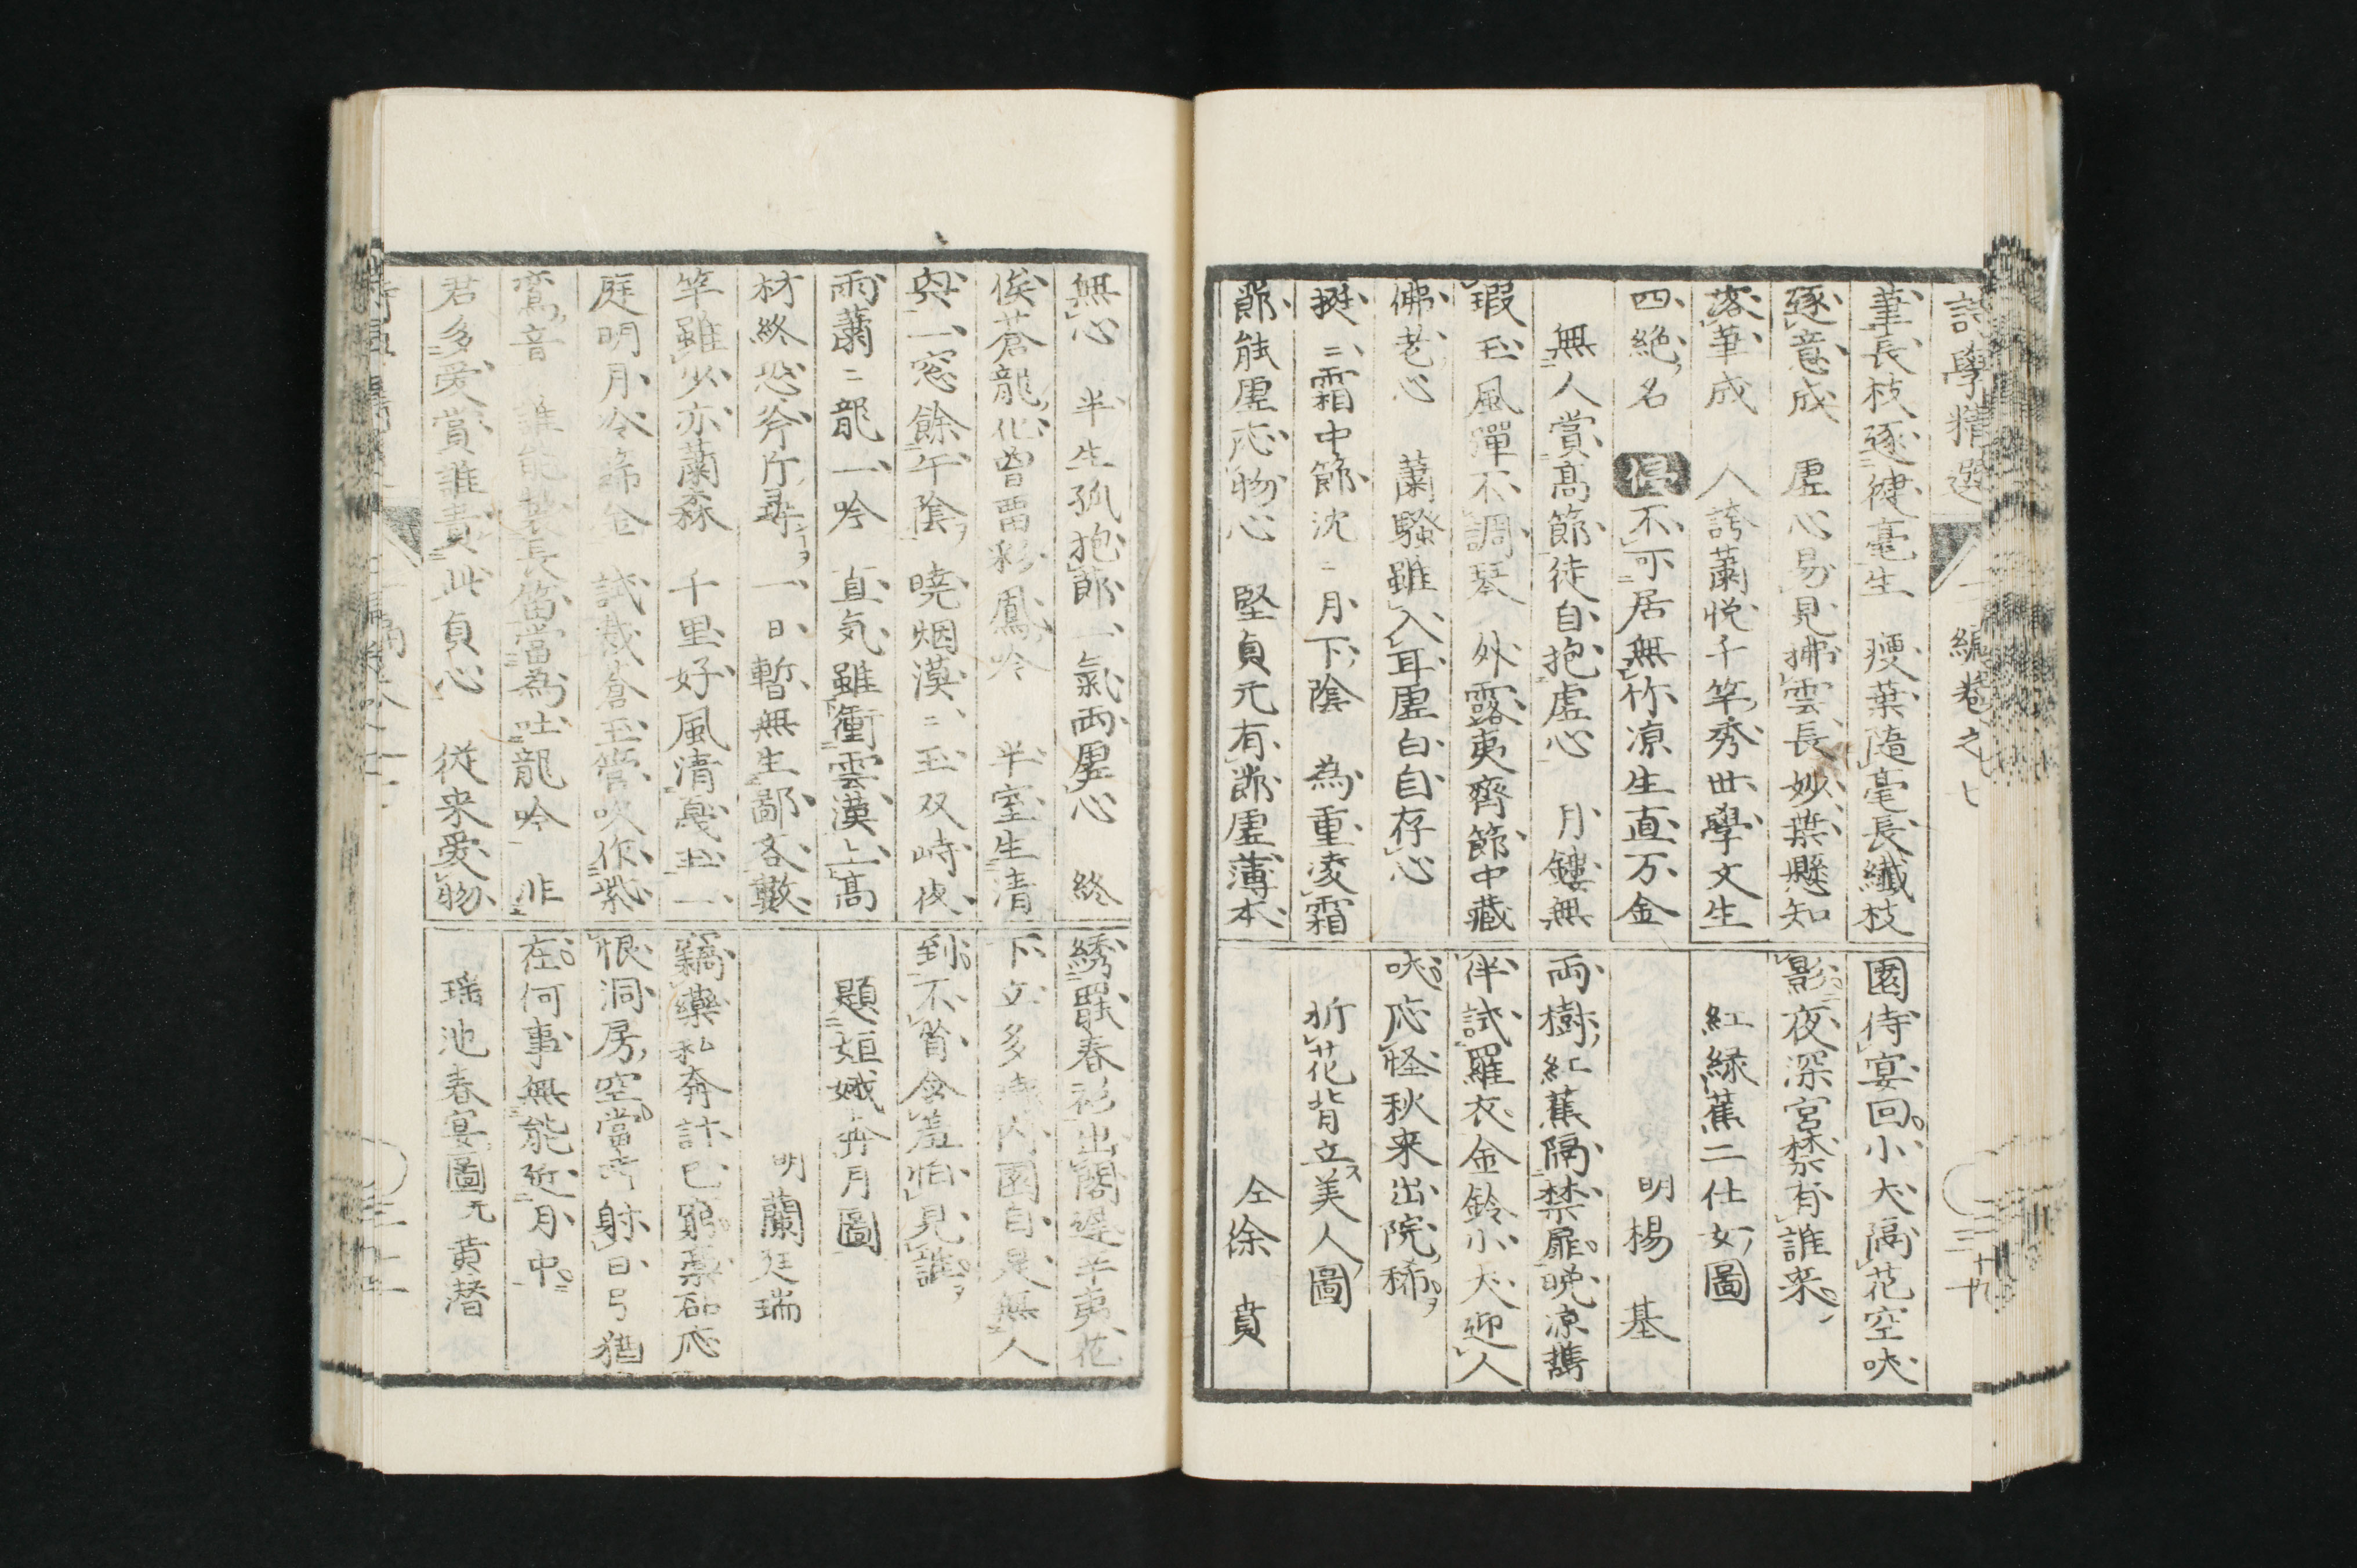 詩學精選 二編卷之七
筆長枝逐健毫生 瘦葉隨毫長纖枝
逐意成 虛心易見拂雲長妙葉懸知
落筆成 人誇蕭悅千竿秀世學文生
四絶名 侵 不可居無竹凉生直万金
無人賞高節徒自抱虚心 月鏤無
瑕玉風彈不調琴 外露夷齊節中藏
佛老心 蕭騷雖入耳虛白自存心
挺ニ霜中節沈ニ月下陰 為重凌霜
節能虛応物心 堅貞元有節虛薄本
園侍宴回小犬隔花空吠
影夜深宮禁有誰来
紅緑蕉二仕女圖
明楊 基
両樹紅蕉隔禁扉晩凉雋
伴試羅衣金鈴小犬迎人
吠応怪秋来出院稀
折花背立美人圖
仝徐 賁
三十九
無心 半生孤抱節一氣両虛心 終
俟蒼龍化曾畱彩鳳吟 半室生清
奥一窓餘午陰 曉烟漠ニ玉双峙夜
雨蕭ニ龍一吟 直気雖衝雲漢上高
材終恐斧斤尋 一日暫無生鄙吝數
竿雖少亦蕭森 千里好風清戛玉一
庭明月冷篩金 試裁倉玉管吹作紫
鸞音 誰能製長笛當為吐龍吟 非
君多愛賞誰貴此貞心 従来愛物
綉罷春衫出閤遅半夷花
下立多時内園自是無人
到不省含羞怕見誰
題姮娥奔月圖
明 蘭廷瑞
竊藥私奔計已窮藁砧応
恨洞房空當時射日弓猶
在何事無能近月中
瑶池春宴圖 元 黄潜